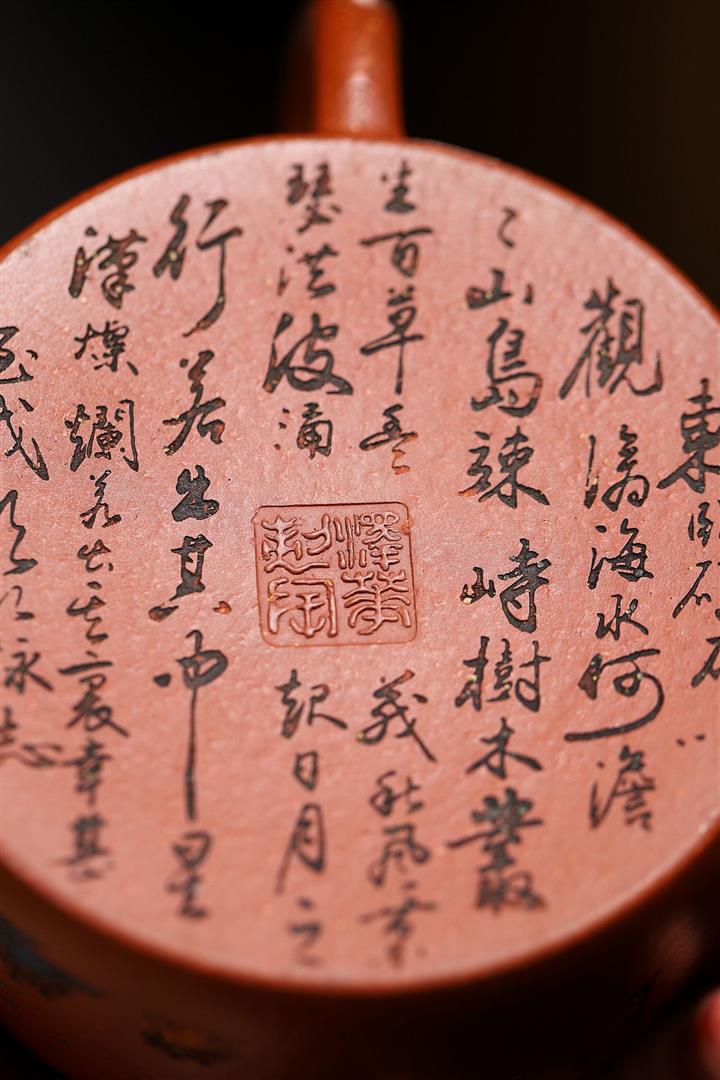 東臨碣石以
觀滄海水何澹
々山島竦峙樹木叢
生百草豐茂秋風蕭
瑟洪波涌起日月之
行若出其中星
漢燦爛若出其裏幸甚
至哉歌以詠志
澤華
製陶